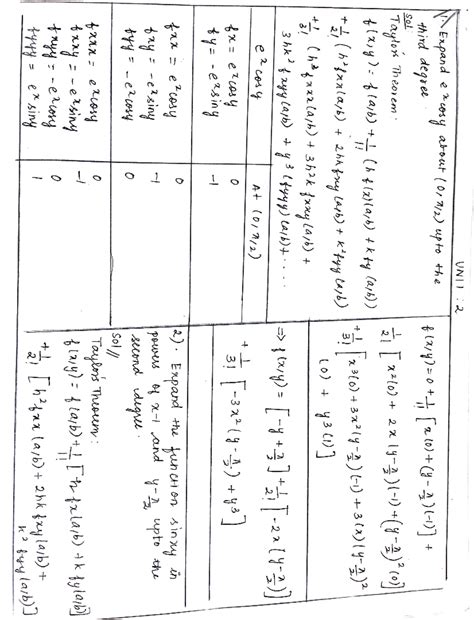 UNIT : 2
1. Expand e^x cosy about (0, π/2) upto the
third degree
Sol:
Taylor's Theorem:
f(x,y) = f(a,b) + 1/1! (h fx(a,b) + k fy (a,b))
+ 1/2! (h² fxx (a,b) + 2hk fxy (a,b) + k² fyy (a,b))
+ 1/3! (h³ fxxx (a,b) + 3h²k fxxy (a,b) +
3hk² fxyy (a,b) + k³ (fyyy) (a,b) + ....
e^x cosy | At (0, π/2)
fx = e^x cosy | 0
fy = -e^x siny | -1
fxx = e^x cosy | 0
fxy = -e^x siny | -1
fyy = -e^x cosy | 0
fxxx = e^x cosy | 0
fxxy = -e^x siny | -1
fxyy = -e^x cosy | 0
fyyy = e^x siny | 1
f(x,y) = 0 + 1/1! [x(0) + (y - π/2)(-1)] +
1/2! [x²(0) + 2x (y - π/2)(-1) + (y - π/2)² (0)]
+ 1/3! [x³(0) + 3x² (y - π/2)(-1) + 3(x)(y - π/2)²
(0) + y³ (1)]
⇒ f(x,y) = [-y + π/2] + 1/2! [-2x (y - π/2)]
+ 1/3! [-3x² (y - π/2) + y³]
2). Expand the function sinxy in
powers of x-1 and y - π/2 upto the
second degree.
Sol//
Taylor's Theorem:
f(x,y) = f(a,b) + 1/1! [h fx(a,b) + k fy(a,b)]
+ 1/2! [h² fxx (a,b) + 2hk fxy (a,b) +
k² fyy (a,b)]